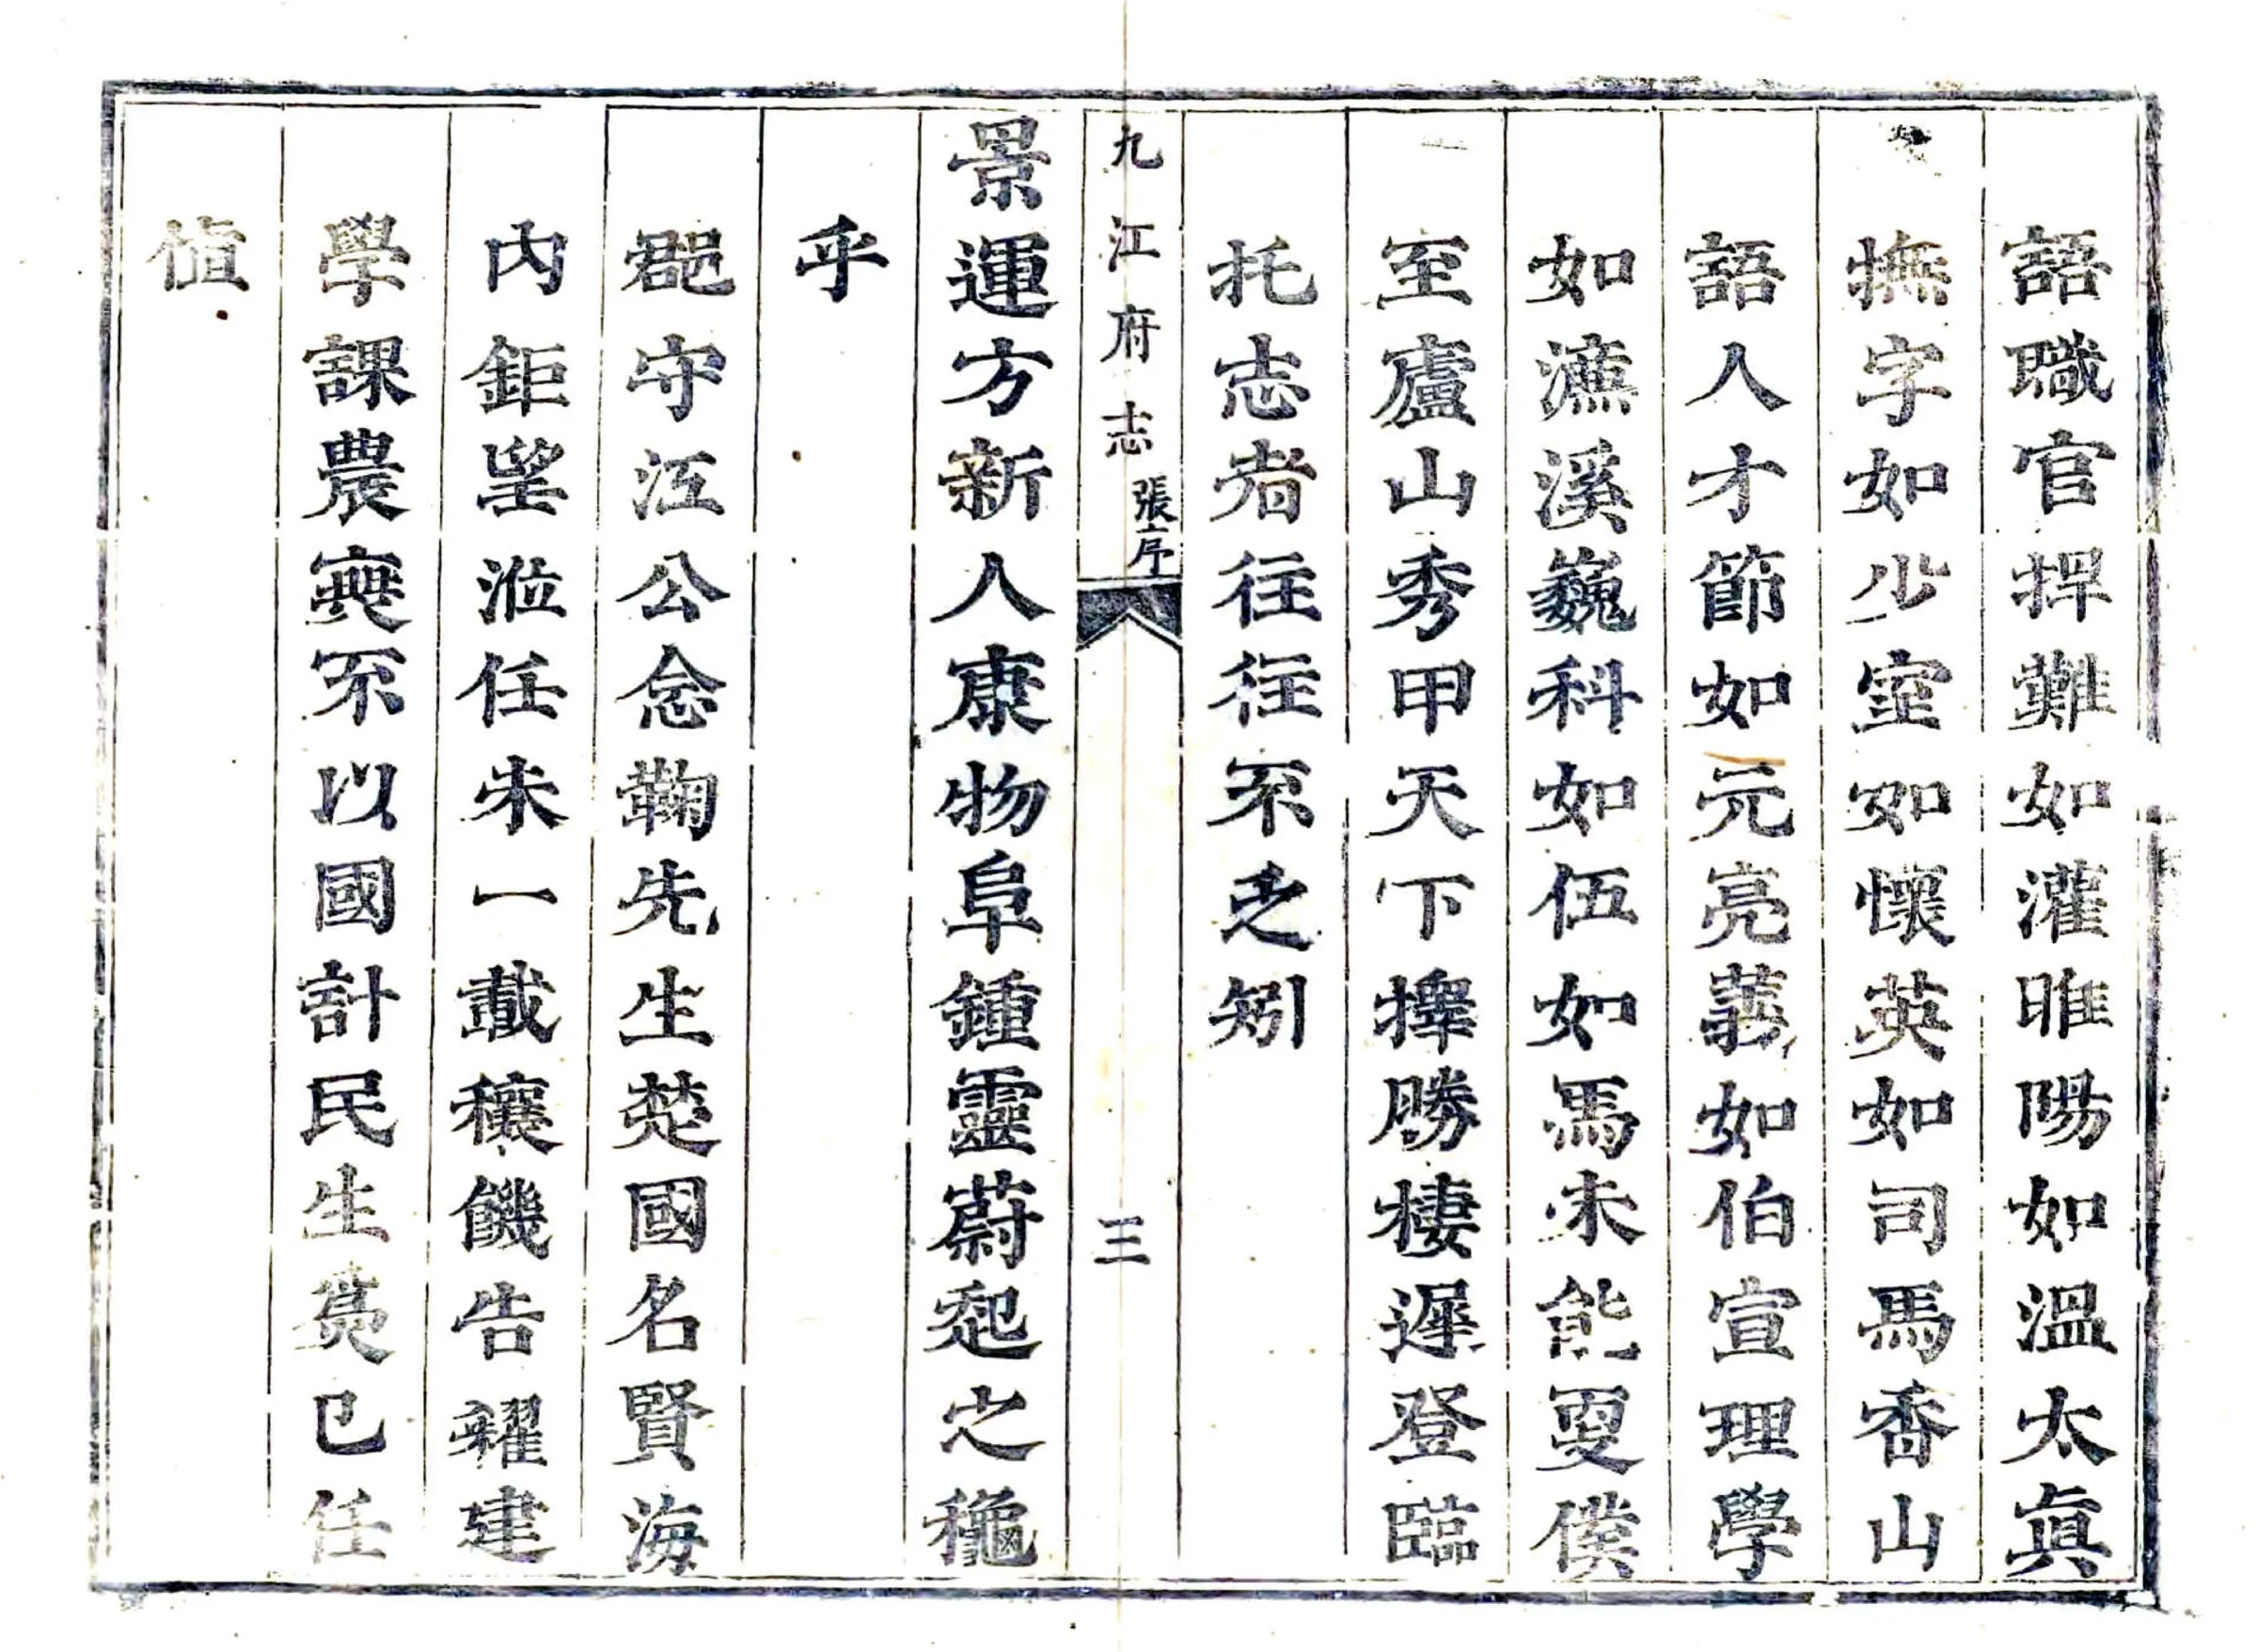 語職官捍難如灌睢陽如溫太眞
撫字如少室如懷英如司馬香山
語人才節如元亮義如伯宣理學
如濂溪巍科如伍如馬未能更僕
至廬山秀甲天下擇勝棲遲登臨
托志者往往不乏矧
九江府志 張序 三
景運方新人康物阜鍾靈蔚起之龝
乎
郡守江公念鞠先生楚國名賢海
內鉅望涖任未一載穰饑告糶建
學課農輿不以國計民生爲已任
値